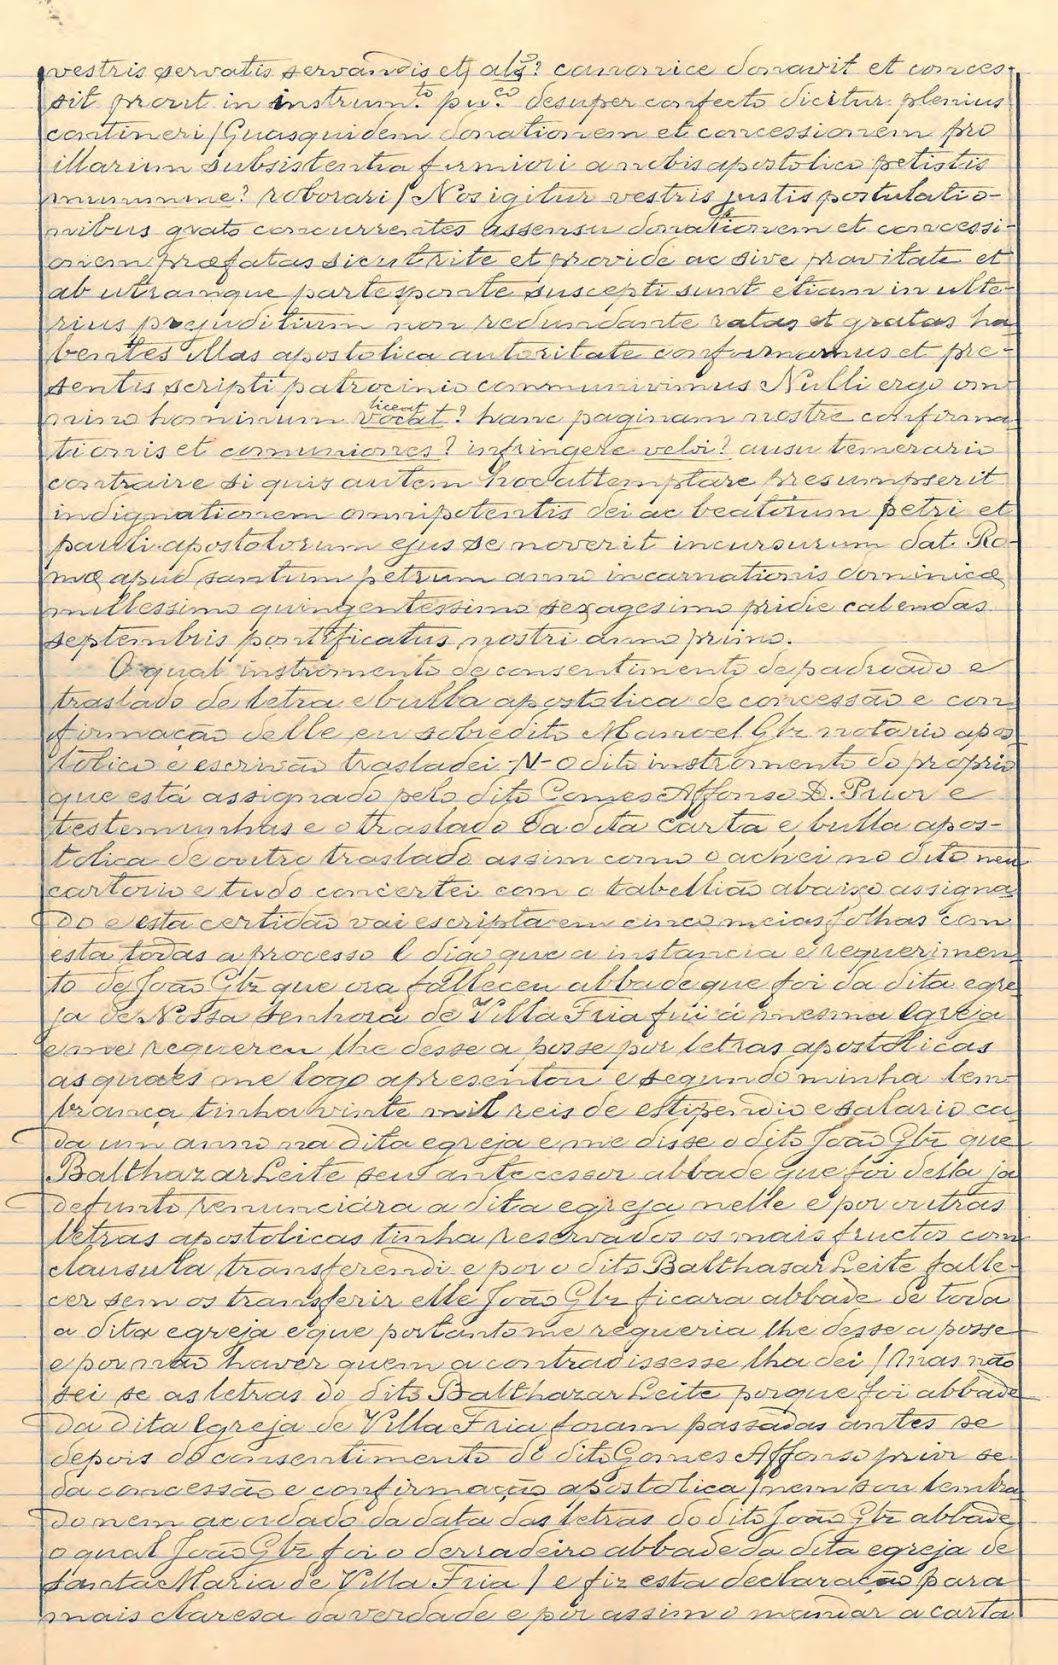 vestris servatis servandis etj alq̃? canonice donavit et conces-
sit prout in instrum.to pu.co desuper confecto dicitur plenius
contineri / Quasquidem donationem et concessionem pro
illarum subsistentia firmiori a nobis apostolico petistis
munimine? roborari / Nos igitur vestris justis postulatio-
nibus grato concurrentes assensu donationem et concessi-
onem præfatas sicut rite et provide ac sive pravitate et
ab utraimque parte sponte suscepti sunt etiam in ulte-
rius prejuditium non redundante ratas et gratas ha
bentes illas apostolica autoritate confirmamus et pre-
sentis scripti patrocinio communivimus Nulli ergo om
nino hominum licent vocat? hanc paginam nostre confirma
tionis et comuniones? infringere velvi? ausu temerario
contraire si quis autem hoc attemptare presumpserit
indignationem omnipotentis dei ac beatorum petri et
pauli apostolorum ejus se noverit incursurum dat. Ro-
mæ apud santum petrum anno incarnationis dominicæ
millessimo quingentessimo sexagesimo pridie calendas
septembris pontificatus nostri anno primo.
O qual instromento de consentimento de padroado e
traslado de letra e bulla apostolica de concessão e con
firmação delle eu sobredito Manoel Glz notario apos
tolico e escrivão trasladei -N- o dito instromento do proprio
que está assignado pelo dito Gomes Affonso D. Prior e
testemunhas e o traslado da dita carta e bulla apos-
tolica de outro traslado assim como o achei no dito meu
cartorio e tudo concertei com o tabellião abaixo assigna
do e esta certidão vai escripta em cinco meias folhas com
esta todas a processo E digo que a instancia e requerimen
to de João Glz que ora falleceu abbade que foi da dita egre
ja de Nossa Senhora de Villa Fria fui á mesma Egreja
e me requereu lhe desse a posse por letras apostolicas
as quaes me logo apresentou e segundo minha lem
brança tinha vinte mil reis de estipendio e salario ca
da um anno na dita egreja e me disse o dito João Glz que
Balthazar Leite seu antecessor abbade que foi della ja
defunto renunciára a dita egreja nelle e por outras
letras apostolicas tinha reservados os mais fructos com
clausula transferendi e por o dito Balthasar Leite falle-
cer sem os transferir elle João Glz ficara abbade de toda
a dita egreja e que portanto me requeria lhe desse a posse
e por não haver quem a contradissesse lha dei / Mas não
sei se as letras do dito Balthazar Leite porque foi abbade
da dita Egreja de Villa Fria foram passadas antes se
depois do consentimento do dito Gomes Affonso prior se
da concessão e confirmação apostolica / nem sou lembra
do nem acordado da data das letras do dito João Glz abbade
o qual João Glz foi o derradeiro abbade da dita egreja de
Santa Maria de Villa Fria / e fiz esta declaração para
mais claresa da verdade e por assim o mandar a carta